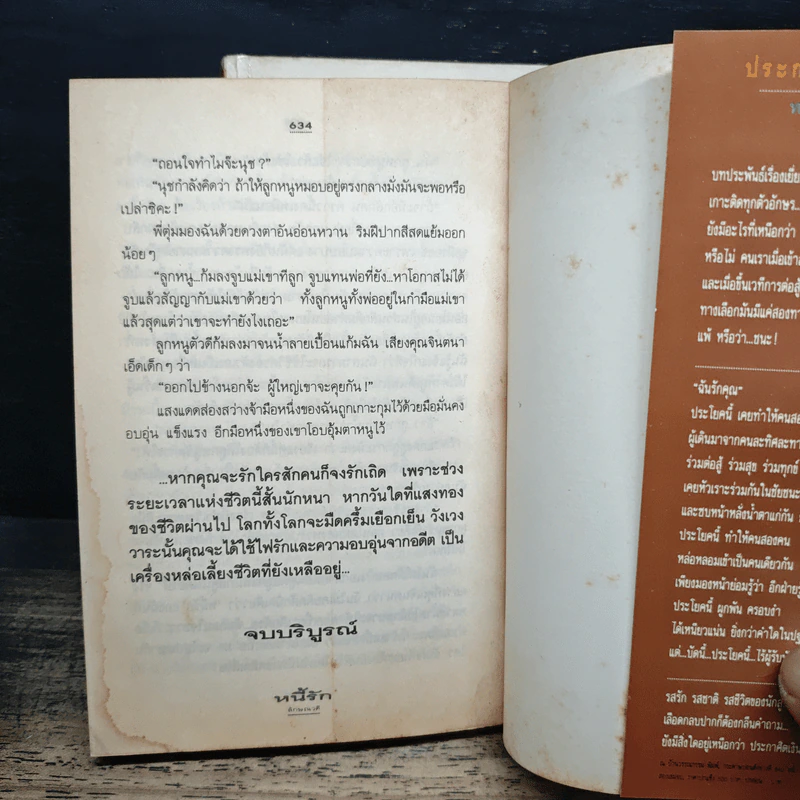 634
“ถอนใจทำไมจ๊ะนุช ?”
“นุชกำลังคิดว่า ถ้าให้ลูกหนูหมอบอยู่ตรงกลางมั่งมันจะพอหรือ
เปล่าซิคะ !”
พี่ตุ่มมองฉันด้วยดวงตาอันอ่อนหวาน ริมฝีปากสีสดแย้มออก
น้อย ๆ
“ลูกหนู...ก้มลงจูบแม่เขาทีลูก จูบแทนพ่อที่ยัง...หาโอกาสไม่ได้
จูบแล้วสัญญากับแม่เขาด้วยว่า ทั้งลูกหนูทั้งพ่ออยู่ในกำมือแม่เขา
แล้วสุดแต่ว่าเขาจะทำยังไงเถอะ”
ลูกหนูตัวดีก้มลงมาจนน้ำลายเปื้อนแก้มฉัน เสียงคุณจินตนา
เอ็ดเด็ก ๆ ว่า
“ออกไปข้างนอกจ้ะ ผู้ใหญ่เขาจะคุยกัน !”
แสงแดดส่องสว่างจ้ามือหนึ่งของฉันถูกเกาะกุมไว้ด้วยมือมั่นคง
อบอุ่น แข็งแรง อีกมือหนึ่งของเขาโอบอุ้มตาหนูไว้
...หากคุณจะรักใครสักคนก็จงรักเถิด เพราะช่วง
ระยะเวลาแห่งชีวิตนี้สั้นนักหนา หากวันใดที่แสงทอง
ของชีวิตผ่านไป โลกทั้งโลกจะมืดครึ้มเยือกเย็น วังเวง
วาระนั้นคุณจะได้ใช้ไฟรักและความอบอุ่นจากอดีต เป็น
เครื่องหล่อเลี้ยงชีวิตที่ยังเหลืออยู่...
จบบริบูรณ์
หนี้รัก
บทประพันธ์เรื่องเยี่ย
เกาะติดทุกตัวอักษร...
ยังมีอะไรที่เหนือกว่า
หรือไม่ คนเราเมื่อเข้าส
และเมื่อขึ้นเวทีการต่อสู้
ทางเลือกมันมีแค่สองทา
แพ้ หรือว่า...ชนะ !
“ฉันรักคุณ”
ประโยคนี้ เคยทำให้คนสอ
ผู้เดินมาจากคนละทิศละทา
ร่วมต่อสู้ ร่วมสุข ร่วมทุกข์
เคยหัวเราะร่วมกันในชัยชนะ
และซบหน้าหลั่งน้ำตาแก่กัน
ประโยคนี้ ทำให้คนสองคน
หล่อหลอมเข้าเป็นคนเดียวกัน
เพียงมองหน้าย่อมรู้ว่า อีกฝ่ายรู้
ประโยคนี้ ผูกพัน ครอบงำ
ได้เหนียวแน่น ยิ่งกว่าคำใดในปฐ
แต่...บัดนี้...ประโยคนี้...ไร้ผู้รับ
รสรัก รสชาติ รสชีวิตของนักสู้
เลือดกลบปากก็ต้องกลืนคำถาม...
ยังมีสิ่งใดอยู่เหนือกว่า ประกาศิตเงิน